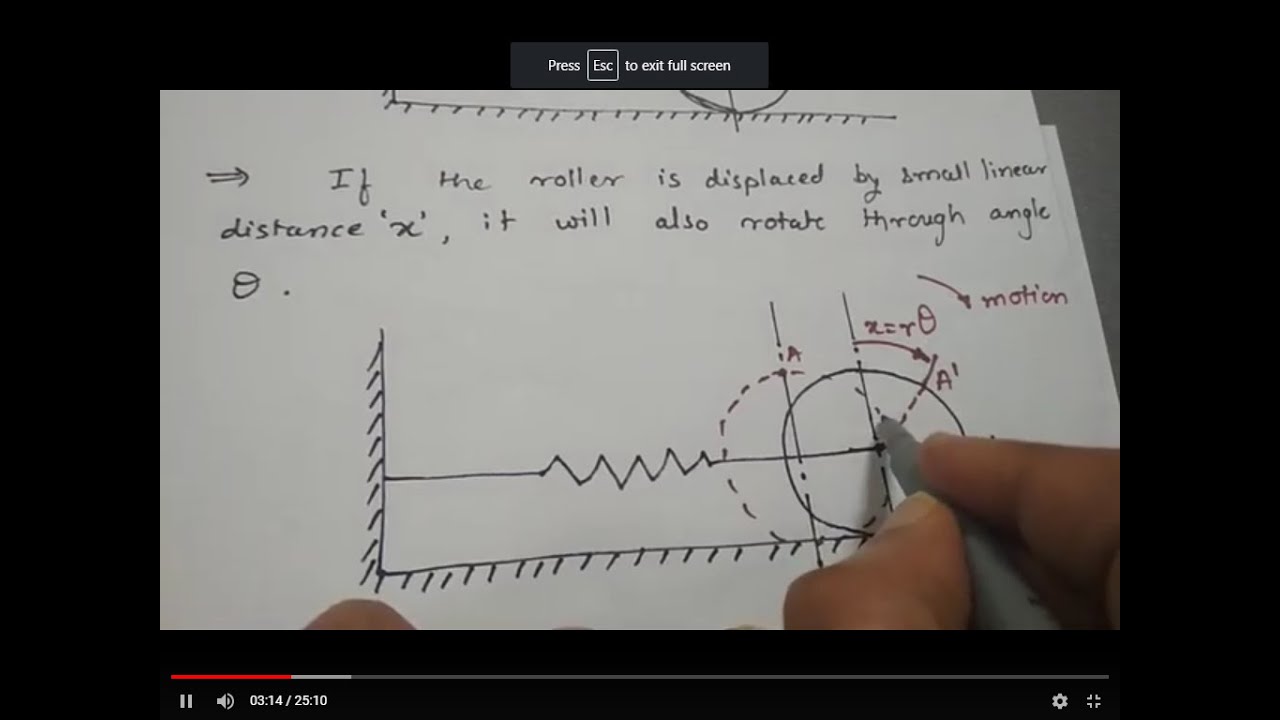 Press Esc to exit full screen
⇒ If the roller is displaced by small linear
distance 'x', it will also rotate through angle
θ .
motion
x=rθ
A
A'
03:14 / 25:10